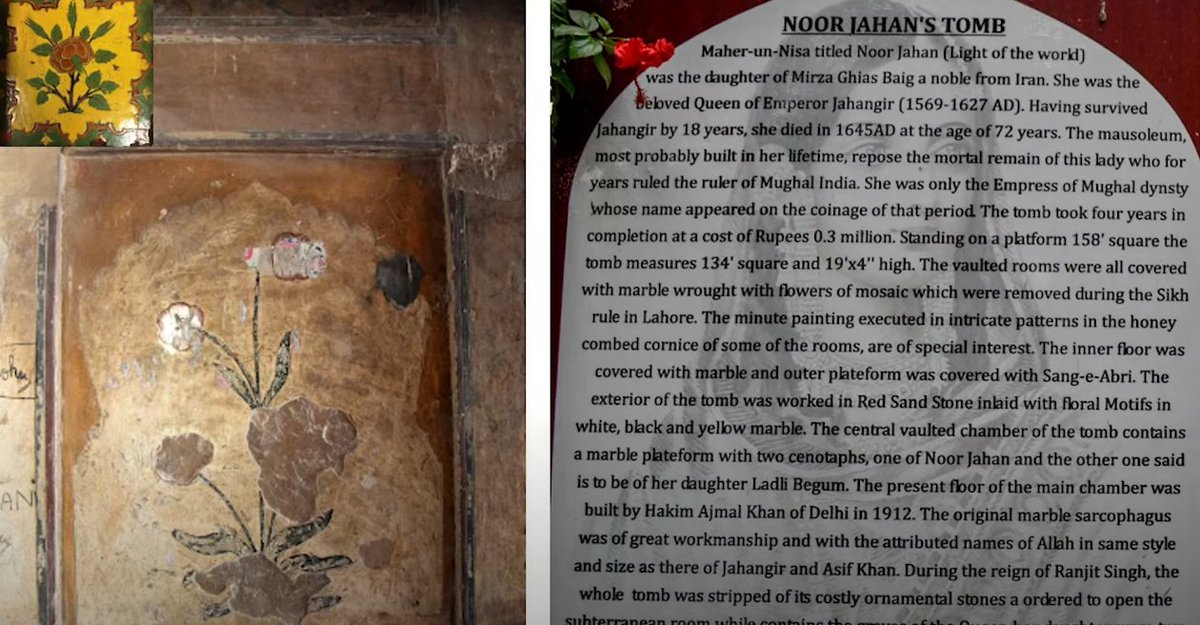 NOOR JAHAN'S TOMB
Maher-un-Nisa titled Noor Jahan (Light of the world)
was the daughter of Mirza Ghias Baig a noble from Iran. She was the
beloved Queen of Emperor Jahangir (1569-1627 AD). Having survived
Jahangir by 18 years, she died in 1645AD at the age of 72 years. The mausoleum,
most probably built in her lifetime, repose the mortal remain of this lady who for
years ruled the ruler of Mughal India. She was only the Empress of Mughal dynsty
whose name appeared on the coinage of that period. The tomb took four years in
completion at a cost of Rupees 0.3 million. Standing on a platform 158' square the
tomb measures 134' square and 19'x4" high. The vaulted rooms were all covered
with marble wrought with flowers of mosaic which were removed during the Sikh
rule in Lahore. The minute painting executed in intricate patterns in the honey
combed cornice of some of the rooms, are of special interest. The inner floor was
covered with marble and outer plateform was covered with Sang-e-Abri. The
exterior of the tomb was worked in Red Sand Stone inlaid with floral Motifs in
white, black and yellow marble. The central vaulted chamber of the tomb contains
a marble plateform with two cenotaphs, one of Noor Jahan and the other one said
is to be of her daughter Ladli Begum. The present floor of the main chamber was
built by Hakim Ajmal Khan of Delhi in 1912. The original marble sarcophagus
was of great workmanship and with the attributed names of Allah in same style
and size as there of Jahangir and Asif Khan. During the reign of Ranjit Singh, the
whole tomb was stripped of its costly ornamental stones a ordered to open the
subterranean room while contains the graves of the Queen